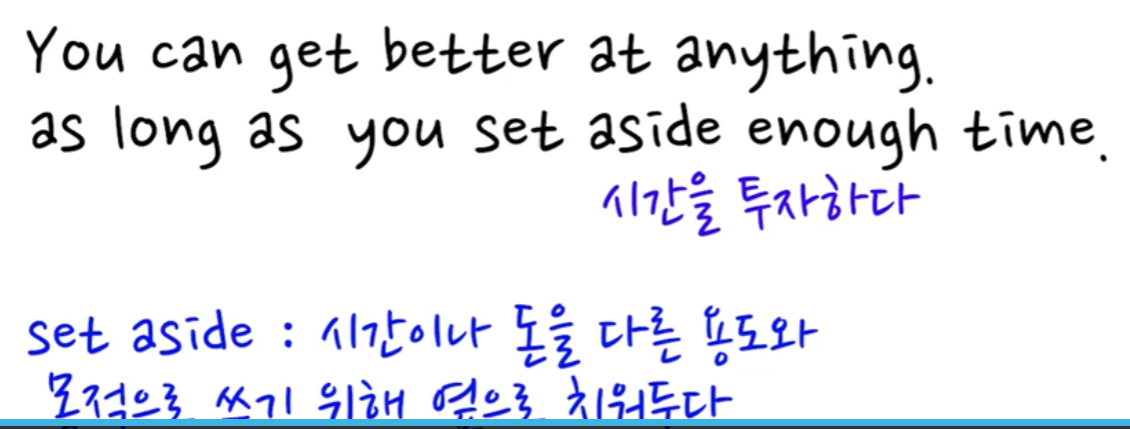 You can get better at anything.
as long as you set aside enough time.
시간을 투자하다
set aside : 시간이나 돈을 다른 용도와
목적으로 쓰기 위해 옆으로 치워두다